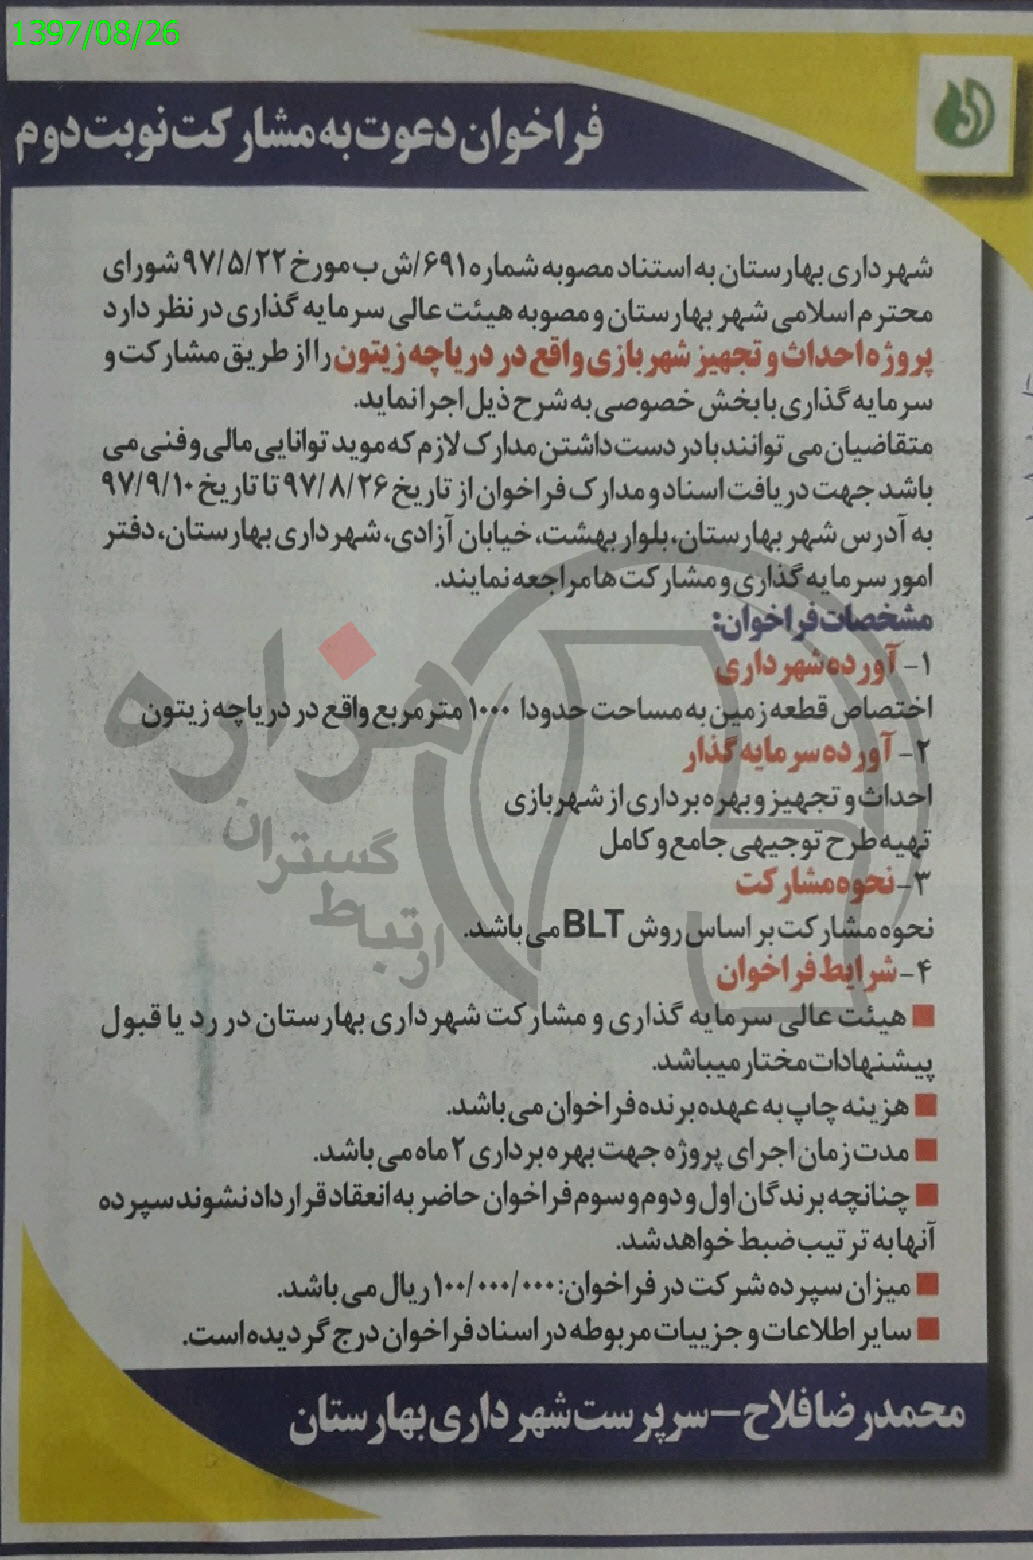 1397/08/26
فراخوان دعوت به مشارکت نوبت دوم
شهرداری بهارستان به استناد مصوبه شماره ۶۹۱/ش ب مورخ ۹۷/۵/۲۲ شورای
محترم اسلامی شهر بهارستان و مصوبه هیئت عالی سرمایه گذاری در نظر دارد
پروژه احداث و تجهیز شهربازی واقع در دریاچه زیتون را از طریق مشارکت و
سرمایه گذاری با بخش خصوصی به شرح ذیل اجرا نماید.
متقاضیان می توانند با در دست داشتن مدارک لازم که موید توانایی مالی و فنی می
باشد جهت دریافت اسناد و مدارک فراخوان از تاریخ ۹۷/۸/۲۶ تا تاریخ ۹۷/۹/۱۰
به آدرس شهر بهارستان، بلوار بهشت، خیابان آزادی، شهرداری بهارستان، دفتر
امور سرمایه گذاری و مشارکت ها مراجعه نمایند.
مشخصات فراخوان:
۱- آورده شهرداری
اختصاص قطعه زمین به مساحت حدودا ۱۰۰۰ متر مربع واقع در دریاچه زیتون
۲- آورده سرمایه گذار
احداث و تجهیز و بهره برداری از شهربازی
تهیه طرح توجیهی جامع و کامل
۳- نحوه مشارکت
نحوه مشارکت بر اساس روش BLT می باشد.
۴- شرایط فراخوان
هیئت عالی سرمایه گذاری و مشارکت شهرداری بهارستان در رد یا قبول
پیشنهادات مختار میباشد.
هزینه چاپ به عهده برنده فراخوان می باشد.
مدت زمان اجرای پروژه جهت بهره برداری ۲ ماه می باشد.
چنانچه برندگان اول و دوم و سوم فراخوان حاضر به انعقاد قرارداد نشوند سپرده
آنها به ترتیب ضبط خواهد شد.
میزان سپرده شرکت در فراخوان: ۱۰۰/۰۰۰/۰۰۰ ریال می باشد.
سایر اطلاعات و جزییات مربوطه در اسناد فراخوان درج گردیده است.
محمدرضا فلاح – سرپرست شهرداری بهارستان
هزاره
گستران
ارتباط